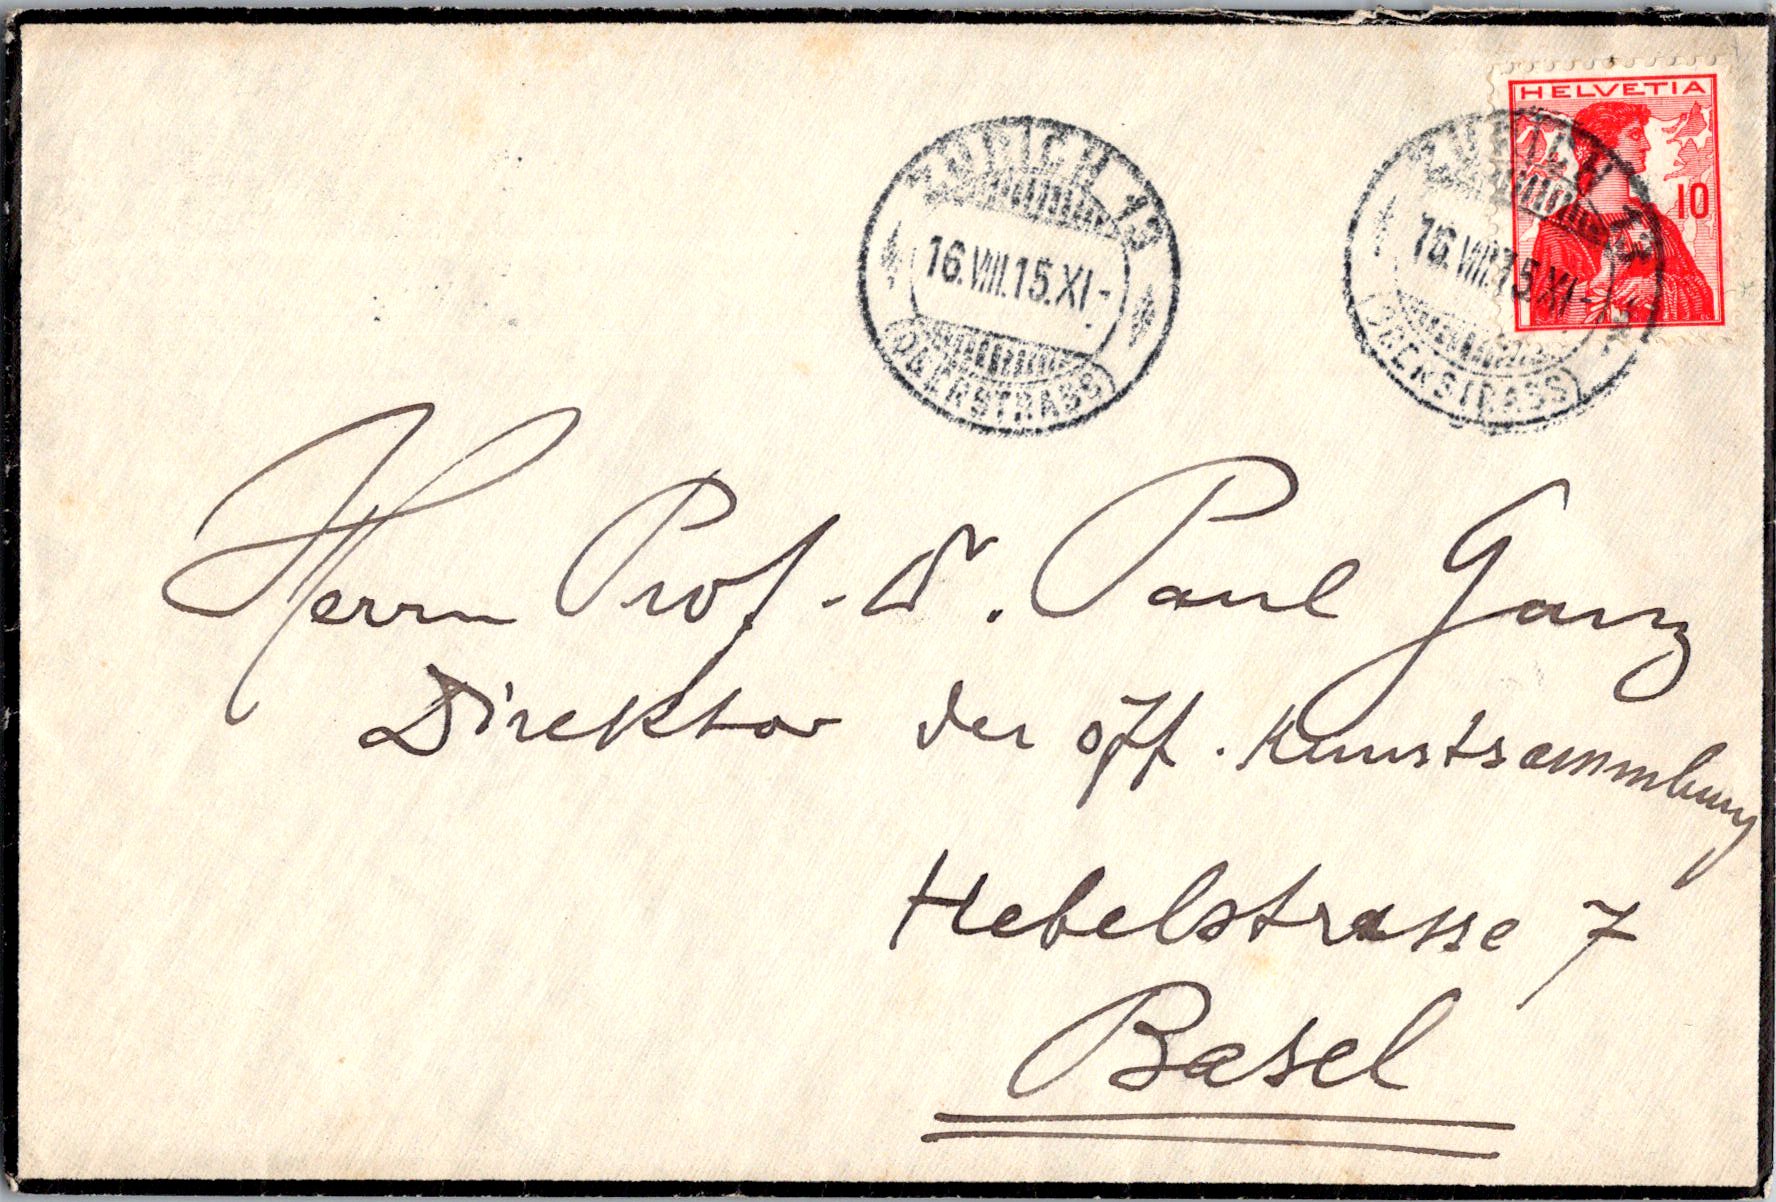 HELVETIA
10
ZÜRICH 13
16.VIII.15.XI-
OBERSTRASS
ZÜRICH 13
16.VIII.15.XI-
OBERSTRASS
Herrn Prof. Dr. Paul Ganz
Direktor der öff. Kunstsammlung
Hebelstrasse 7
Basel